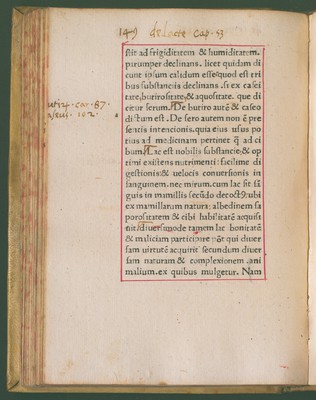 149 de lacte cap. 53
stit ad frigiditatem & humiditatem.
parumper declinans. licet quidam di
cunt ipsum calidum esse quod est tri
bus substanciis declinans .s. ex casei
tate, butirositate, & aquositate. que di
citur serum. De butiro autē & caseo
dictum est. De sero autem non ē pre
sentis intencionis. quia eius usus po
tius ad medicinam pertinet q̄ ad ci
bum. Lac est nobilis substancie & op
timi existens nutrimenti: facilime di
gestionis: & uelocis conuersionis in
sanguinem. nec mirum. cum lac sit sā
guis in mamillis secūdo decoctꝰ. ubi
ex mamillarum natura: albedinem sa
porositatem & cibi habilitatē acquisi
uit. diuersimode tamen lac bonitatē
& maliciam participare pōt qui diuer
sam uirtutē acquirit secundum diuer
sam naturam & complexionem .ani
malium. ex quibus mulgetur. Nam
cap. 87.
102.